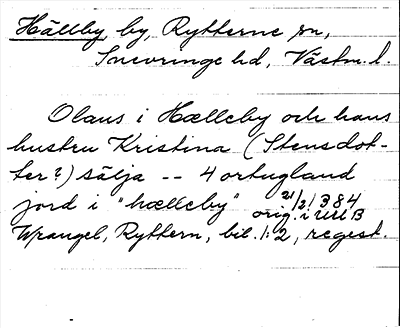 Hällby, by, Rytterne sn,
Snevringe hd, Västm. l.
Olaus i Hælleby och hans
hustru Kristina (Stensdot-
ter?) sälja -- 4 örtugland
jord i "hælleby" 21/2 1384
orig. i UUB
Wrangel, Ryttern, bil. 1:2, regest.